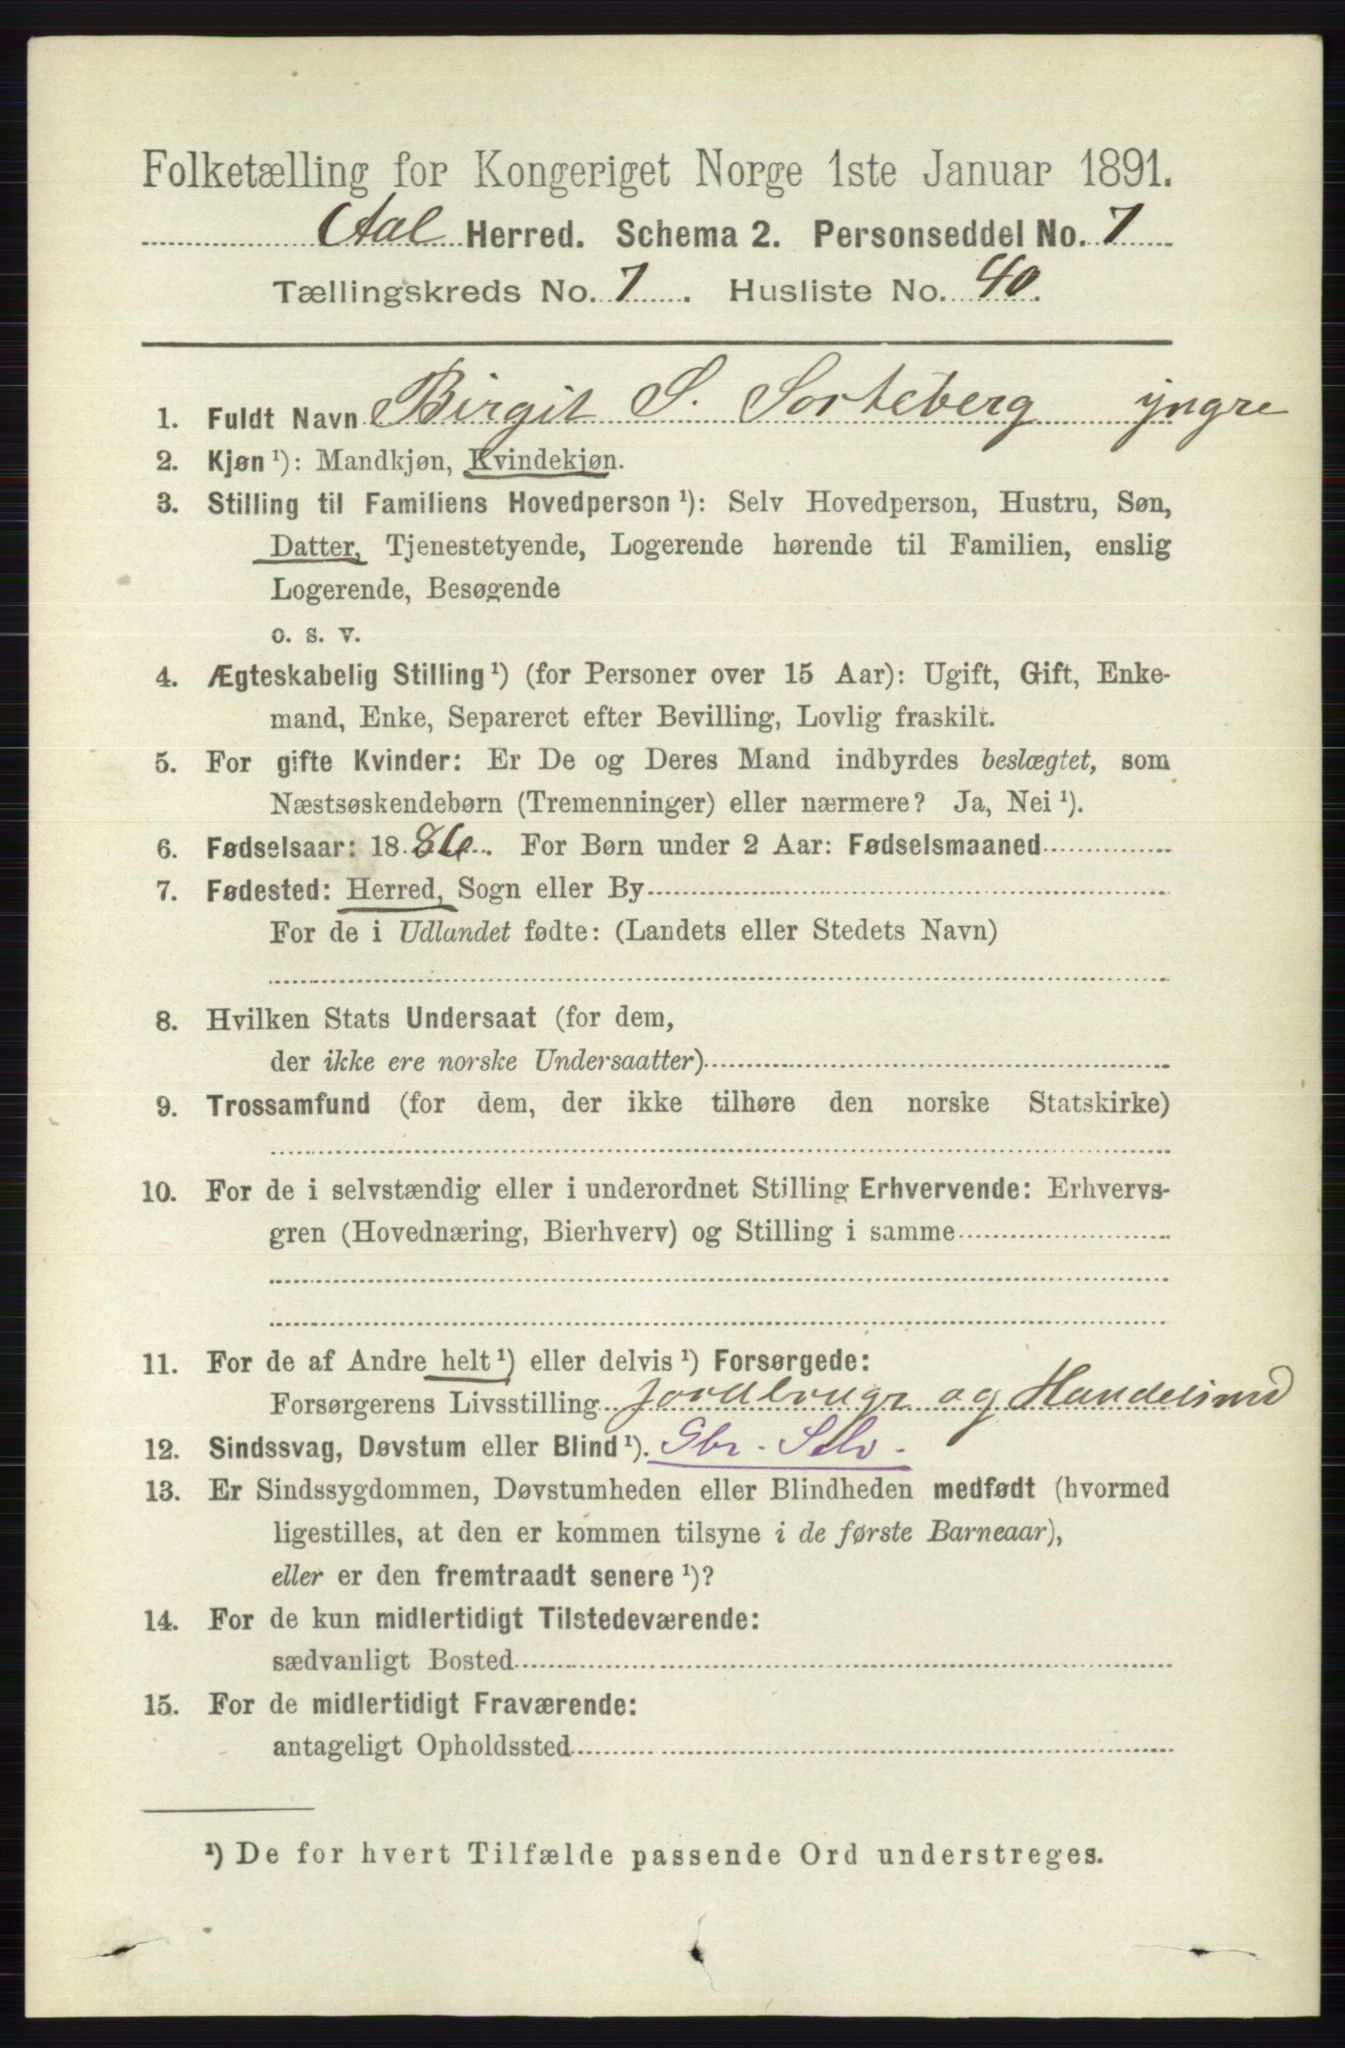 Folketælling for Kongeriget Norge 1ste Januar 1891.
Aal Herred. Schema 2. Personseddel No. 7
Tællingskreds No. 7. Husliste No. 40.
1. Fuldt Navn Birgit S. Sorteberg yngre
2. Kjøn ¹): Mandkjøn, Kvindekjøn.
3. Stilling til Familiens Hovedperson ¹): Selv Hovedperson, Hustru, Søn,
Datter, Tjenestetyende, Logerende hørende til Familien, enslig
Logerende, Besøgende
o. s. v.
4. Ægteskabelig Stilling ¹) (for Personer over 15 Aar): Ugift, Gift, Enke-
mand, Enke, Separeret efter Bevilling, Lovlig fraskilt.
5. For gifte Kvinder: Er De og Deres Mand indbyrdes beslægtet, som
Næstsøskendebørn (Tremenninger) eller nærmere? Ja, Nei ¹).
6. Fødselsaar: 1886. For Børn under 2 Aar: Fødselsmaaned
7. Fødested: Herred, Sogn eller By
For de i Udlandet fødte: (Landets eller Stedets Navn)
8. Hvilken Stats Undersaat (for dem,
der ikke ere norske Undersaatter)
9. Trossamfund (for dem, der ikke tilhøre den norske Statskirke)
10. For de i selvstændig eller i underordnet Stilling Erhvervende: Erhvervs-
gren (Hovednæring, Bierhverv) og Stilling i samme
11. For de af Andre helt ¹) eller delvis ¹) Forsørgede:
Forsørgerens Livsstilling Jordbrugr og Handelsmd
12. Sindssvag, Døvstum eller Blind ¹). Gbr. Selv.
13. Er Sindssygdommen, Døvstumheden eller Blindheden medfødt (hvormed
ligestilles, at den er kommen tilsyne i de første Barneaar),
eller er den fremtraadt senere ¹)?
14. For de kun midlertidigt Tilstedeværende:
sædvanligt Bosted
15. For de midlertidigt Fraværende:
antageligt Opholdssted
¹) De for hvert Tilfælde passende Ord understreges.